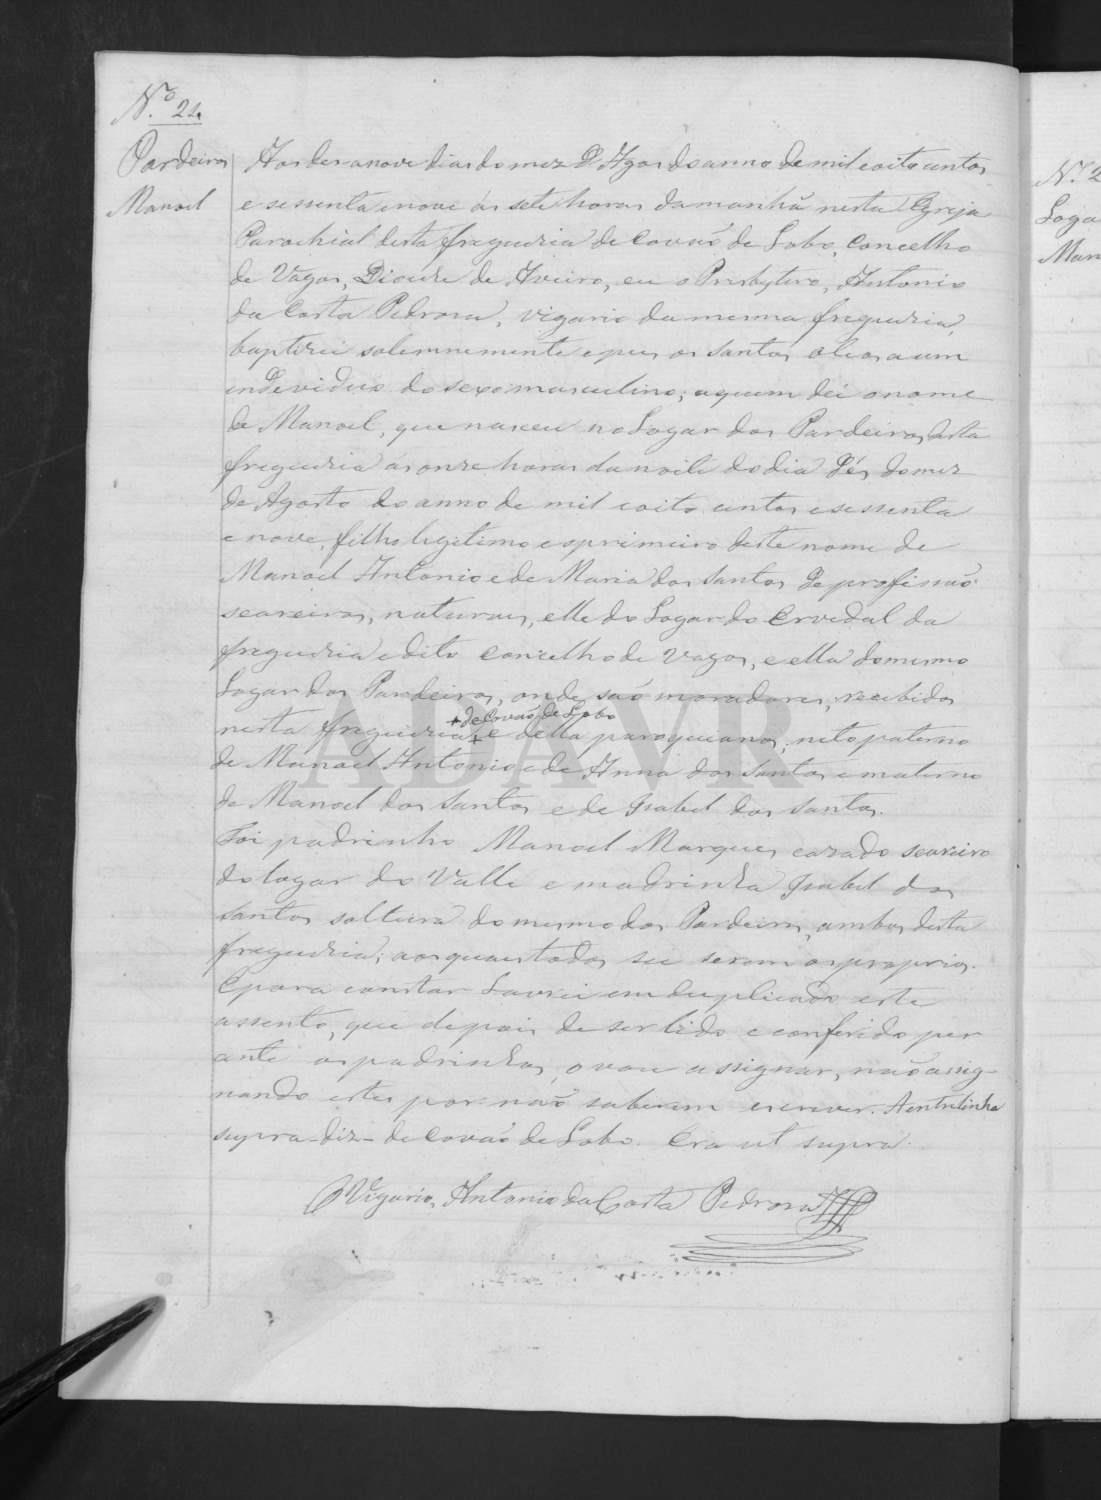 N.º 21
Pardeiros
Manoel
Aos desanove dias do mez D'Agosto do anno de mil e oito centos
e sessenta e nove ás sete horas da manhã nesta Egreja
Parochial desta freguezia de Covão de Lobo, Concelho
de Vagos, Diocese de Aveiro, eu o Presbytero, Antonio
da Costa Pedrosa, vigario da mesma freguezia,
baptizei solemnemente e puz os Santos oleos a um
individuo do sexo masculino; a quem dei o nome
de Manoel, que nasceu no Logar dos Pardeiros desta
freguezia ás onze horas da noite do dia dés do mez
de Agosto do anno de mil e oito centos e sessenta
e nove, filho legitimo e o primeiro deste nome de
Manoel Antonio e de Maria dos Santos de profissão
seareiros, naturaes, elle do Logar do Ervedal da
freguezia e dito Concelho de Vagos, e ella do mesmo
Logar dos Pardeiros, onde são moradores, recebidos
+ de Covão de Lobo
nesta freguezia + e della paroquianos, neto paterno
de Manoel Antonio e de Anna dos Santos e materno
de Manoel dos Santos e de Isabel dos Santos.
Foi padrinho Manoel Marques cazado seareiro
do logar do Valle e madrinha Isabel dos
Santos solteira do mesmo dos Pardeiros, ambos desta
freguezia; aos quaes todos sei serem os proprios.
E para constar Lavrei em duplicado este
assento, que depois de ser lido e conferido per
ante os padrinhos, o vou assignar, não assig-
nando estes por não saberem escrever. A entrelinha
supra - diz - de Covão de Lobo. Era ut supra.
O Vigario, Antonio da Costa Pedrosa
ADAVR
N.º 2
Loga
Man